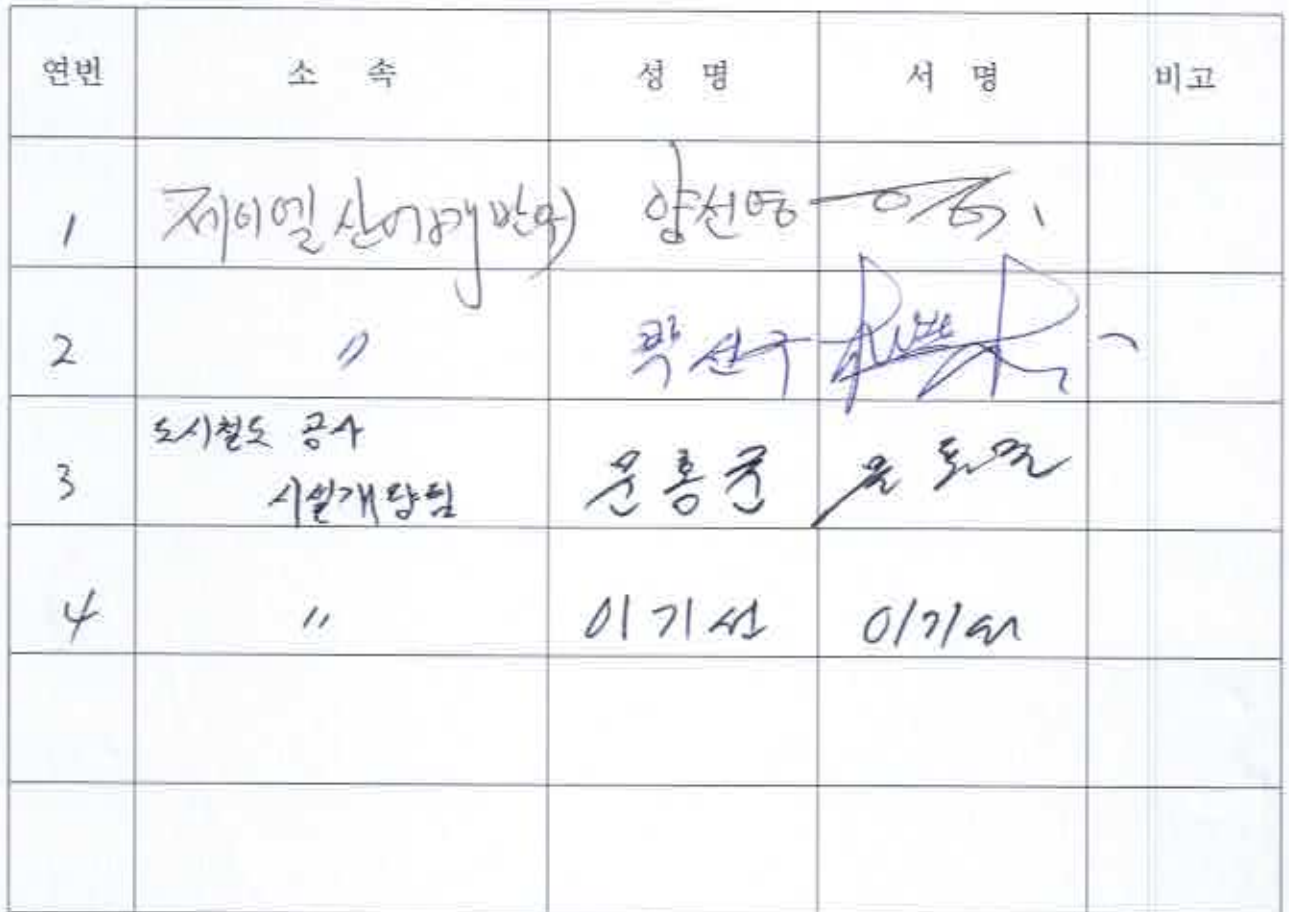 연번 소 속 성 명 서 명 비고
1 제이엘산업개발㈜ 양선영
2 〃 곽선구
3 도시철도 공사 문홍군
시설개량팀
4 〃 이기선 이기선